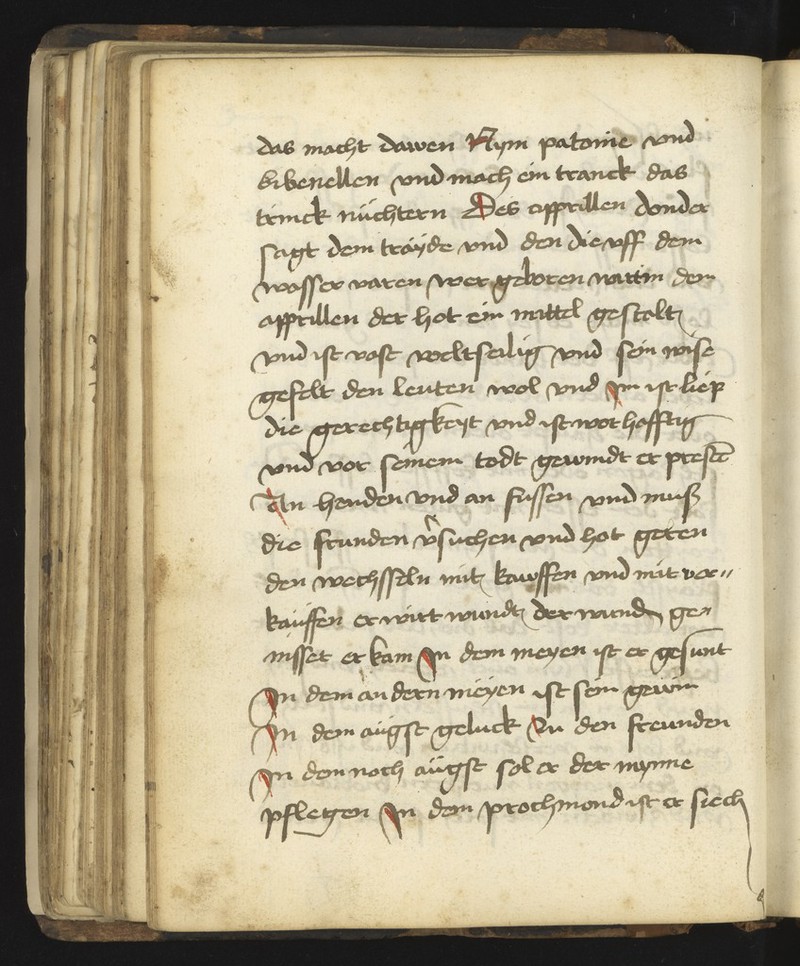 das macht dawen Nym patonie vnd
bibenellen vnd mach ein tranck das
trinck nüchtern Des apprillen donder
sagt dem träyde vnd den die vff dem
wasser varen wer geboren wirt in dem
apprillen der hot ein mittel gestalt
vnd ist vast weltseilig vnd sein wise
gefelt den leuten wol vnd im ist liep
die gerechtigkeyt vnd ist worhafftig
vnd vor seinem todt gewindt er presten
An henden vnd an fussen vnd muß
die frunden v̾suchen vnd hot geren
den wechsseln mit kawffen vnd mit ver〃
kaüffen er wirt wundt der wunden ge〃
nisset er kam In dem meyen ist er gesunt
In dem andern meyen ist sein gewin
In dem aügst geluck Zu den freunden
In dem noch aügst sol er der mynne
pflegen In dem prochmond ist er siech